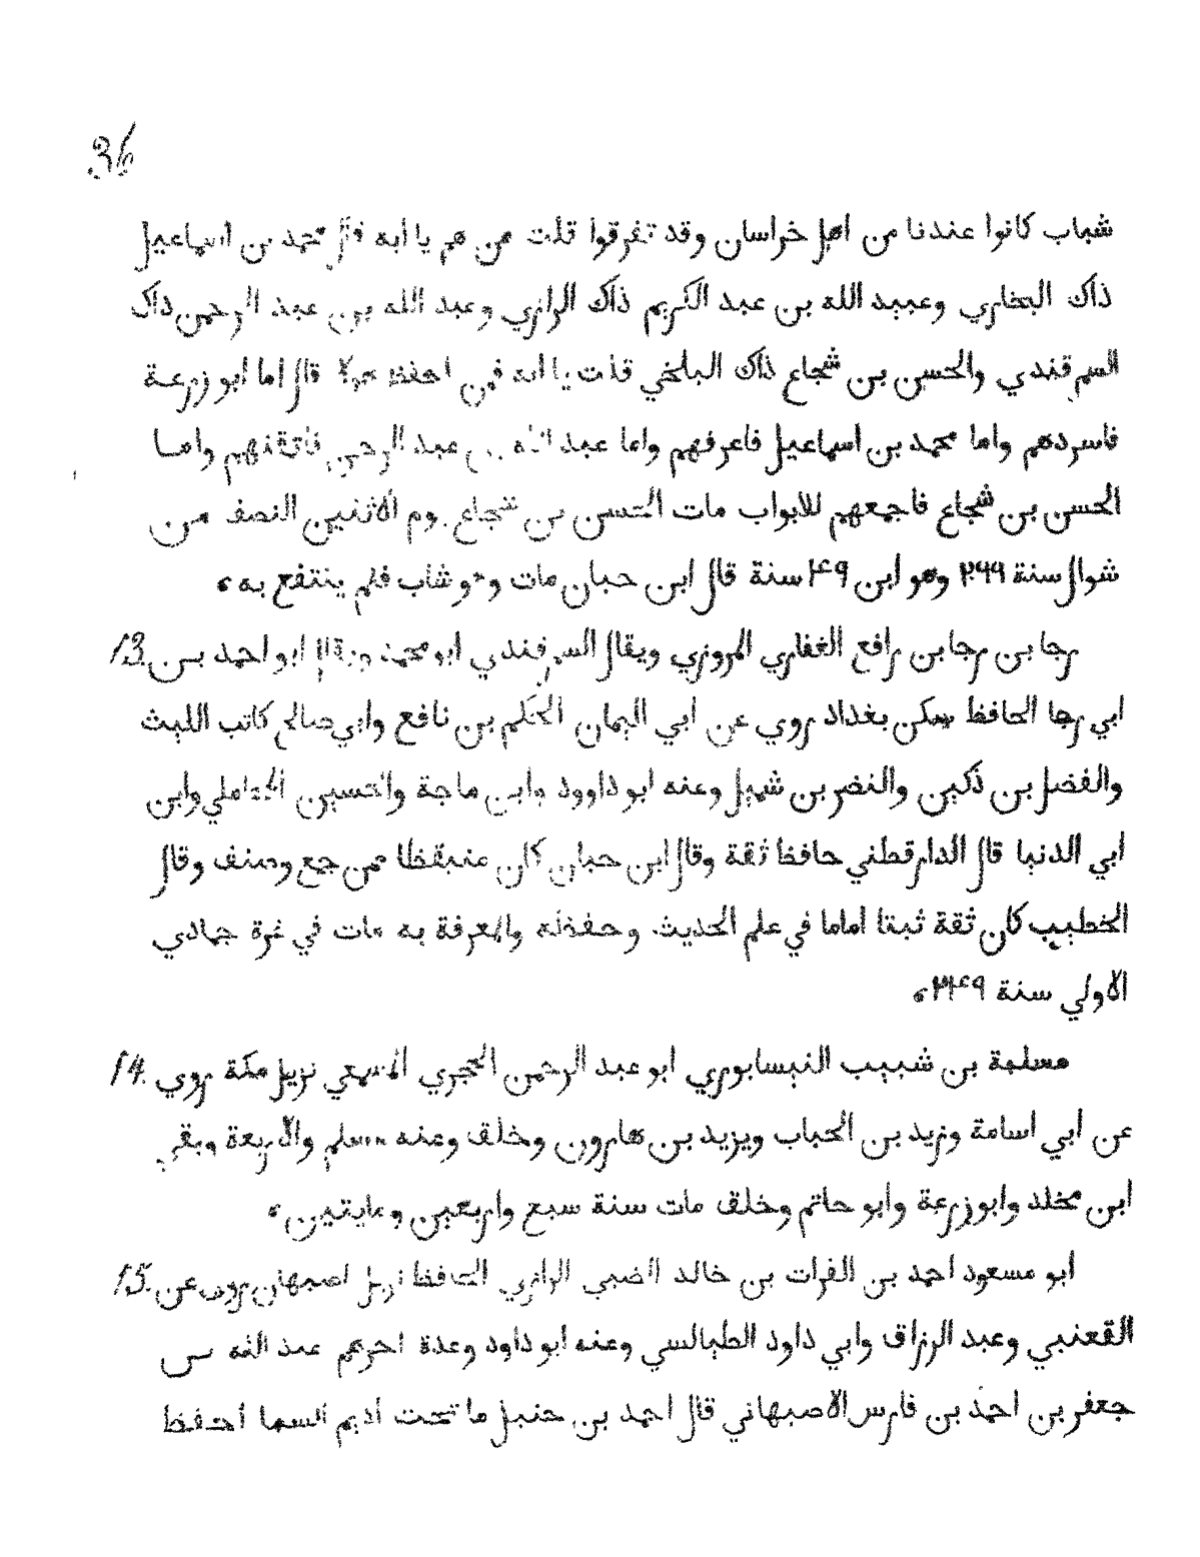 36
شباب كانوا عندنا من اهل خراسان وقد تفرقوا قلت من هم يا ابه قال محمد بن اسماعيل
ذاك البخاري وعبيد الله بن عبد الكريم ذاك الرازي وعبد الله بن عبد الرحمن ذاك
السمرقندي والحسن بن شجاع ذاك البلخي قلت يا ابه فمن احفظ هولا قال اما ابو زرعة
فاسردهم واما محمد بن اسماعيل فاعرفهم واما عبد الله بن عبد الرحمن فاتقنهم واما
الحسن بن شجاع فاجمعهم للابواب مات الحسن بن شجاع يوم الاثنين النصف من
شوال سنة ٢٦٦ وهو ابن ٤٩ سنة قال ابن حبان مات وهو شاب فلم ينتفع به
13. رجا بن رجا بن رافع الغفاري المروزي ويقال السمرقندي ابو محمد ويقال ابو احمد بن
ابي رجا الحافظ سكن بغداد روي عن ابي اليمان الحكم بن نافع وابي صالح كاتب الليث
والفضل بن ذكين والنضر بن شميل وعنه ابو داوود وابن ماجة والحسين المحاملي وابن
ابي الدنيا قال الدارقطني حافظ ثقة وقال ابن حبان كان متيقظا ممن جمع وصنف وقال
الخطيب كان ثقة ثبتا اماما في علم الحديث وحفظه والمعرفة به مات في غرة جمادي
الاولي سنة ٢٤٩
14. مسلمة بن شبيب النيسابوري ابو عبد الرحمن الحجري المسمعي نزيل مكة روي
عن ابي اسامة وزيد بن الحباب ويزيد بن هارون وخلق وعنه مسلم والاربعة وبقي
ابن مخلد وابو زرعة وابو حاتم وخلق مات سنة سبع واربعين ومايتين
15. ابو مسعود احمد بن الفرات بن خالد الضبي الرازي الحافظ نزيل اصبهان روي عن
القعنبي وعبد الرزاق وابي داود الطيالسي وعنه ابو داود وعدة اخرهم عبد الله بن
جعفر بن احمد بن فارس الاصبهاني قال احمد بن حنبل ما تحت اديم السما احفظ